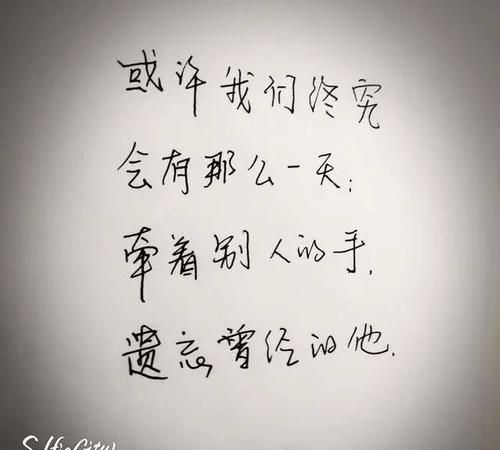 或许我们终究
会有那么一天；
牵着别人的手，
遗忘曾经的他．
SelfieCity